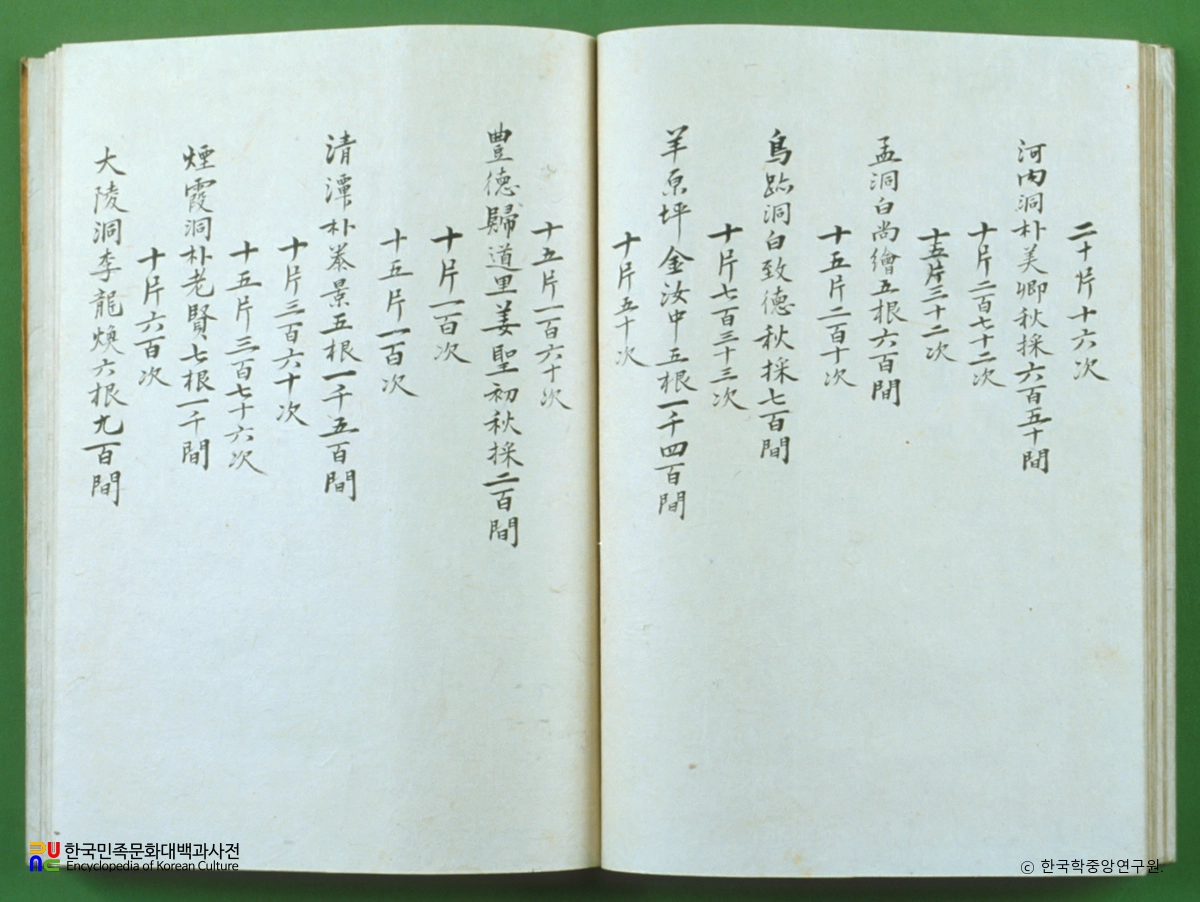 二十片十六次
河內洞朴美卿秋採六百五十間
十片二百七十二次
十五片三十二次
孟洞白尚繪五根六百間
十五片二百十次
鳥跡洞白致德秋採七百間
十片七百三十三次
羊原坪 金汝中五根一千四百間
十片五十次
十五片一百六十次
豊德歸道里姜聖初秋採二百間
十片一百次
十五片一百次
清潭朴 景五根一千五百間
十片三百六十次
十五片三百七十六次
煙霞洞朴老賢七根一千間
十片六百次
大陵洞李龍煥六根九百間
한국민족문화대백과사전
Encyclopedia of Korean Culture
ⓒ 한국학중앙연구원.